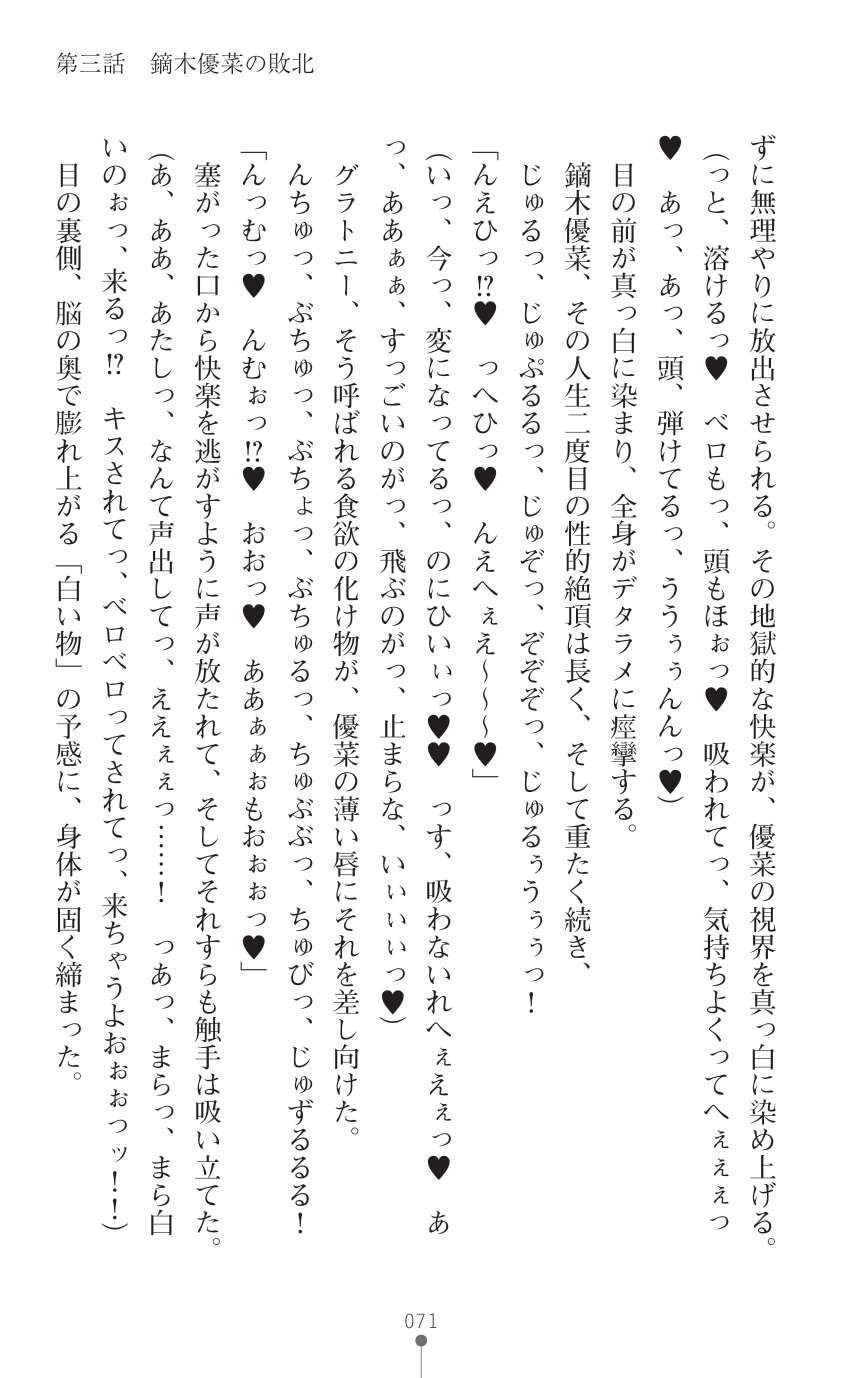 第三話　鏑木優菜の敗北
ずに無理やりに放出させられる。その地獄的な快楽が、優菜の視界を真っ白に染め上げる。
（っと、溶けるっ♥　ベロもっ、頭もほぉっ♥　吸われてっ、気持ちよくってへぇぇぇっ
♥　あっ、あっ、頭、弾けてるっ、ううぅぅんんっ♥）
　目の前が真っ白に染まり、全身がデタラメに痙攣する。
　鏑木優菜、その人生二度目の性的絶頂は長く、そして重たく続き、
　じゅるっ、じゅぷるるっ、じゅぞっ、ぞぞぞっ、じゅるぅうぅぅっ！
「んえひっ!?♥　っへひっ♥　んえへぇえ～～～♥」
（いっ、今っ、変になってるっ、のにひいぃっ♥♥　っす、吸わないれへぇえぇっ♥　あ
っ、ああぁぁ、すっごいのがっ、飛ぶのがっ、止まらな、いぃぃぃっ♥）
　グラトニー、そう呼ばれる食欲の化け物が、優菜の薄い唇にそれを差し向けた。
　んちゅっ、ぶちゅっ、ぶちょっ、ぶちゅるっ、ちゅぶぶっ、ちゅびっ、じゅずるるる！
「んっむっ♥　んむぉっ!?♥　おおっ♥　ああぁぁぉもおぉぉっ♥」
　塞がった口から快楽を逃がすように声が放たれて、そしてそれすらも触手は吸い立てた。
（あ、ああ、あたしっ、なんて声出してっ、ええぇぇっ……！　っあっ、まらっ、まら白
いのぉっ、来るっ!?　キスされてっ、ベロベロってされてっ、来ちゃうよおぉぉっッ！！）
　目の裏側、脳の奥で膨れ上がる「白い物」の予感に、身体が固く締まった。
071